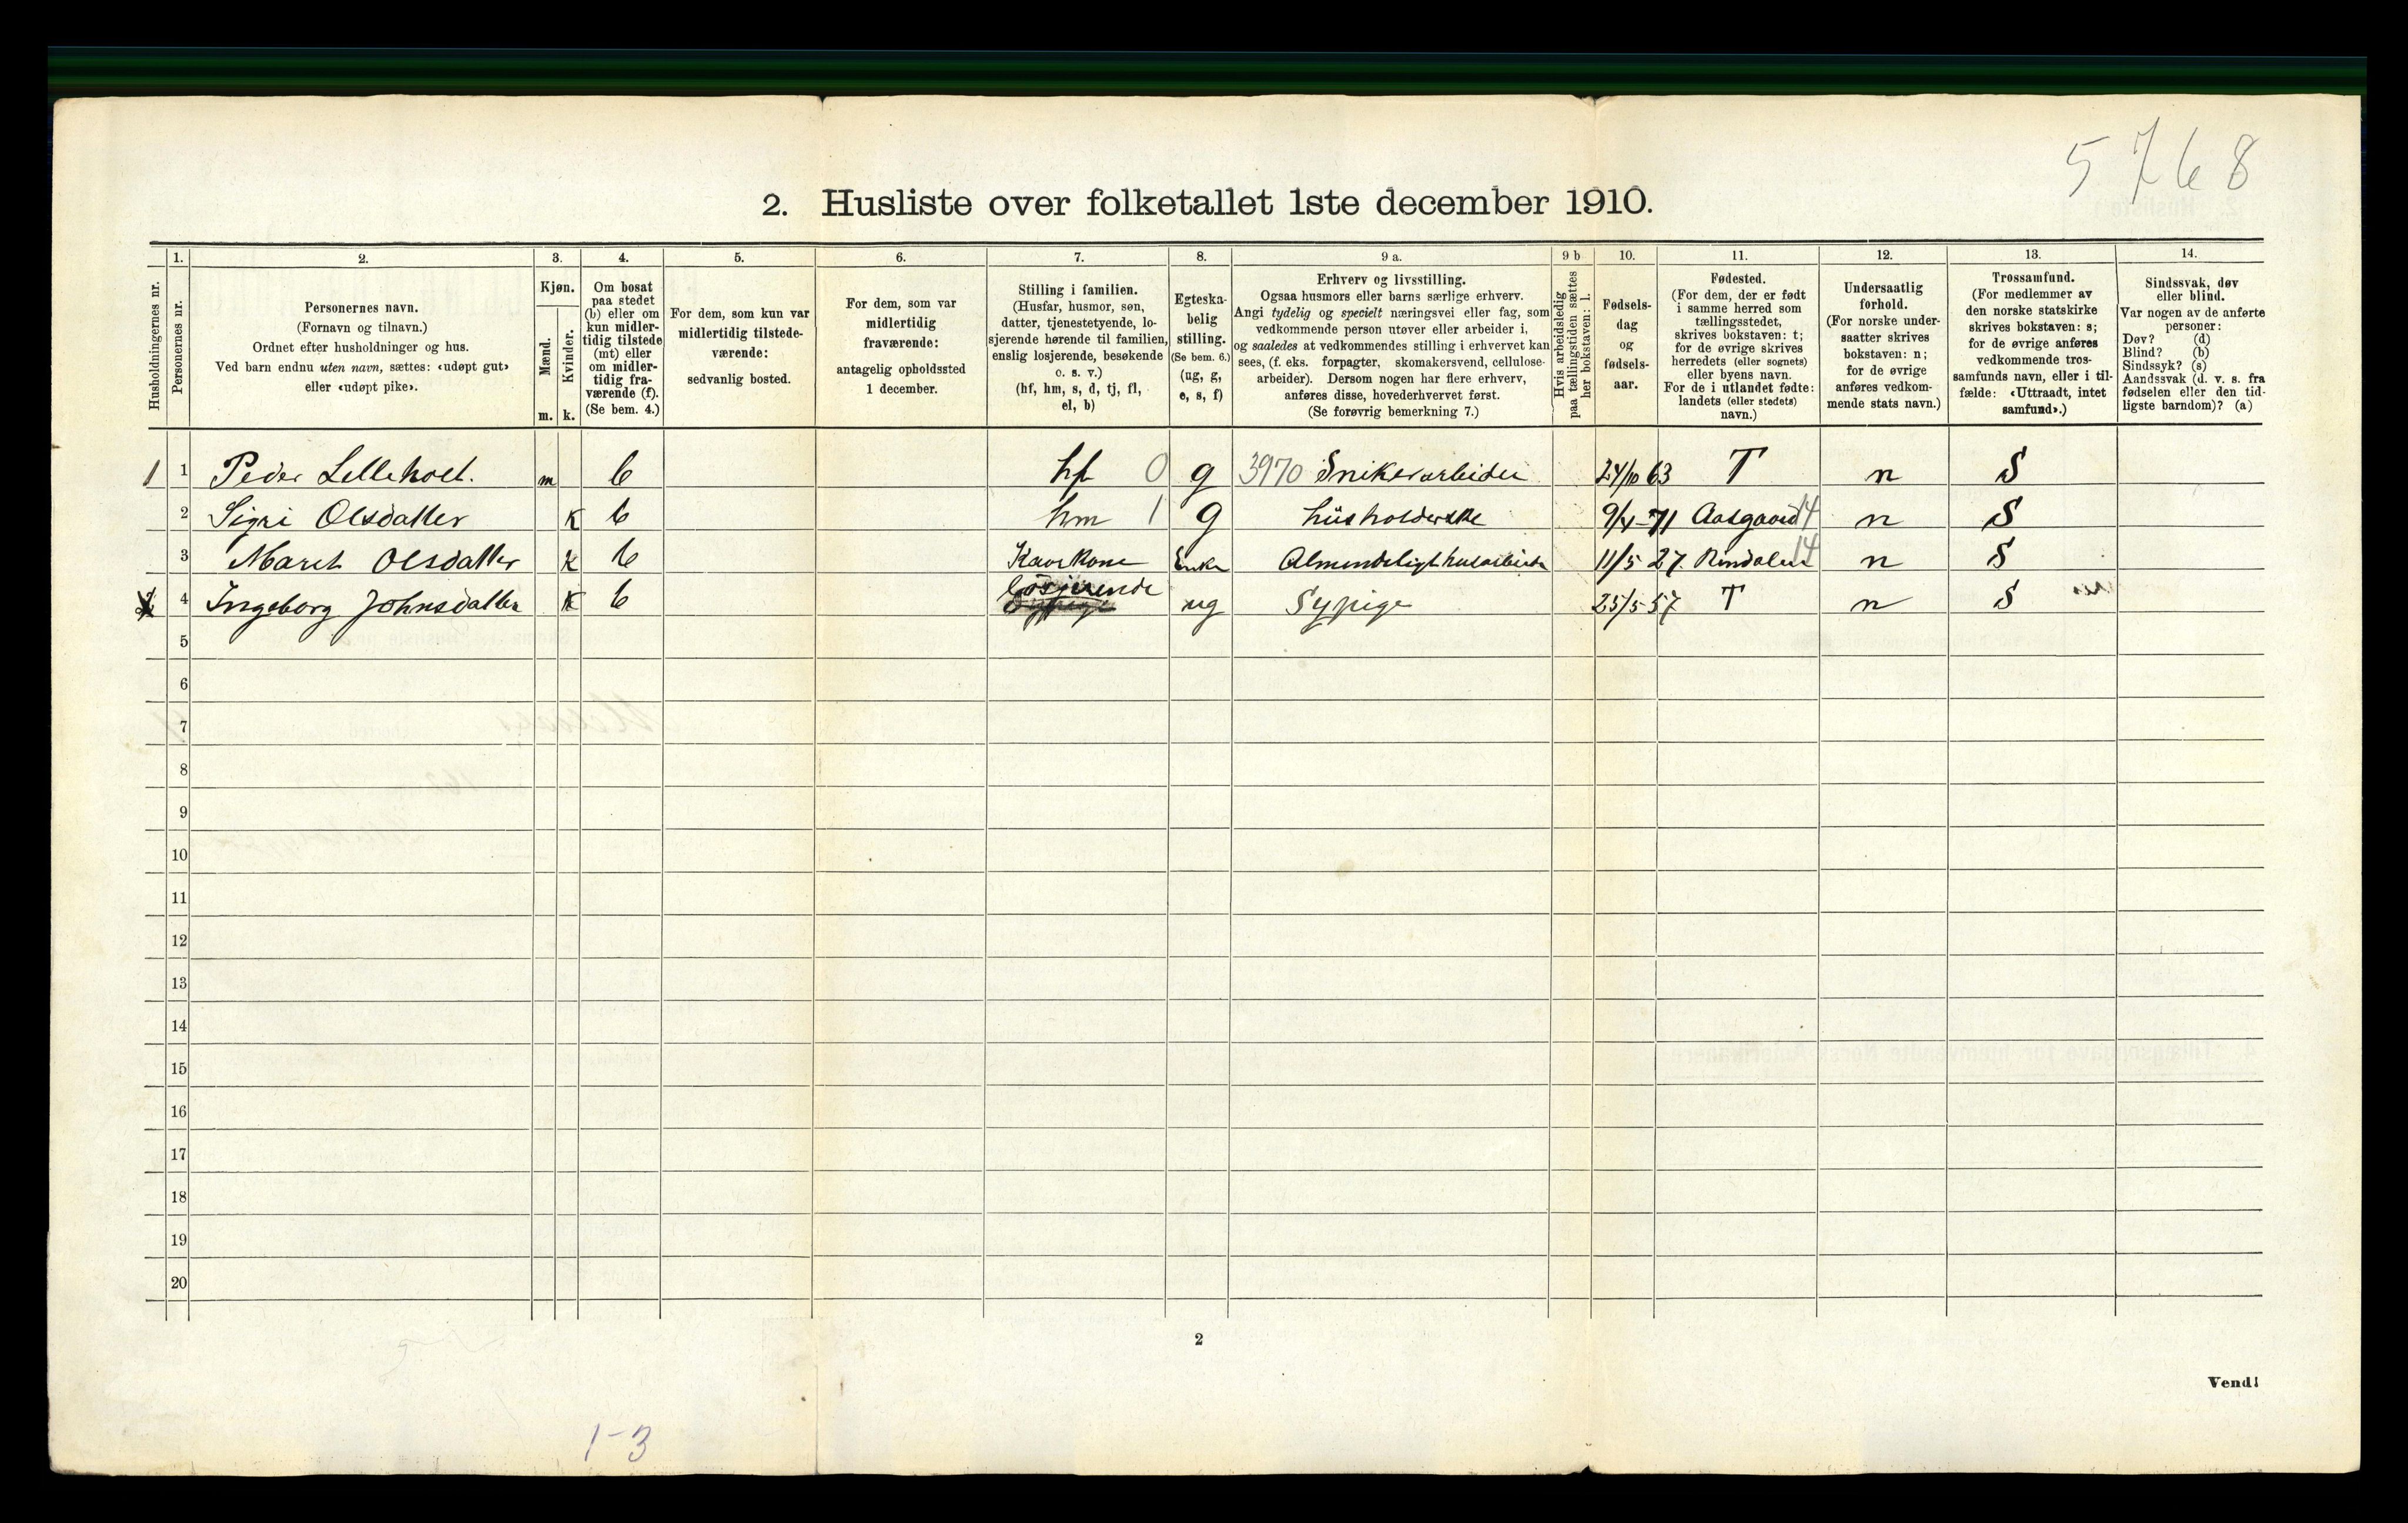 5768
2. Husliste over folketallet 1ste december 1910.
Husholdningernes nr.
1.
Personernes nr.
2.
Personernes navn.
(Fornavn og tilnavn.)
Ordnet efter husholdninger og hus.
Ved barn endnu uten navn, sættes: «udøpt gut»
eller «udøpt pike».
3.
Kjøn.
Mænd.
m.
Kvinder.
k.
4.
Om bosat
paa stedet
(b) eller om
kun midler-
tidig tilstede
(mt) eller
om midler-
tidig fra-
værende (f).
(Se bem. 4.)
5.
For dem, som kun var
midlertidig tilstede-
værende:
sedvanlig bosted.
6.
For dem, som var
midlertidig
fraværende:
antagelig opholdssted
1 december.
7.
Stilling i familien.
(Husfar, husmor, søn,
datter, tjenestetyende, lo-
sjerende hørende til familien,
enslig losjerende, besøkende
o. s. v.)
(hf, hm, s, d, tj, fl,
el, b)
8.
Egteska-
belig
stilling.
(Se bem. 6.)
(ug, g,
e, s, f)
9 a.
Erhverv og livsstilling.
Ogsaa husmors eller barns særlige erhverv.
Angi tydelig og specielt næringsvei eller fag, som
vedkommende person utøver eller arbeider i,
og saaledes at vedkommendes stilling i erhvervet kan
sees, (f. eks. forpagter, skomakersvend, cellulose-
arbeider). Dersom nogen har flere erhverv,
anføres disse, hovederhvervet først.
(Se forøvrig bemerkning 7.)
9 b
Hvis arbeidsledig
paa tællingstiden sættes
her bokstaven: l.
10.
Fødsels-
dag
og
fødsels-
aar.
11.
Fødested.
(For dem, der er født
i samme herred som
tællingsstedet,
skrives bokstaven: t;
for de øvrige skrives
herredets (eller sognets)
eller byens navn.
For de i utlandet fødte:
landets (eller stedets)
navn.)
12.
Undersaatlig
forhold.
(For norske under-
saatter skrives
bokstaven: n;
for de øvrige
anføres vedkom-
mende stats navn.)
13.
Trossamfund.
(For medlemmer av
den norske statskirke
skrives bokstaven: s;
for de øvrige anføres
vedkommende tros-
samfunds navn, eller i til-
fælde: «Uttraadt, intet
samfund».)
14.
Sindssvak, døv
eller blind.
Var nogen av de anførte
personer:
Døv? (d)
Blind? (b)
Sindssyk? (s)
Aandssvak (d. v. s. fra
fødselen eller den tid-
ligste barndom)? (a)
1 1 Peder Lilleholt. m b hf 0 g 3970 Snikerarbeider 24/10 63 T n S
2 Sigri Olsdatter K b hm 1 g husholderske 9/4-71 Aasgaard 14 n S
3 Maret Olsdatter K b Kaarkone Enke Almindeligt husarbeide 11/5 27. Rindalen 14 n S
4 Ingeborg Johnsdatter K b Losjerende ug Sypige 25/5 57 T n S
5
6
7
8
9
10
11
12
13
14
15
16
17
18
19
20
2
Vend!
1-3